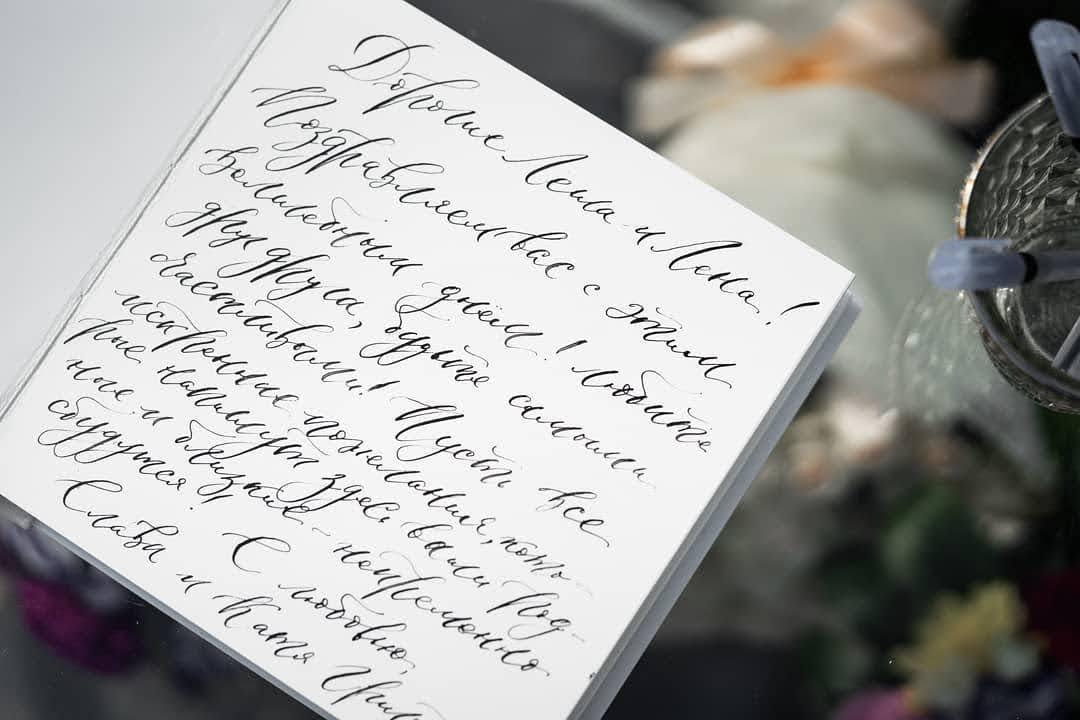 Дорогие Леша и Лена!
Поздравляем вас с этим
волшебным днём! Любите
друг друга, будьте самыми
счастливыми! Пусть все
искренние пожелания, кото-
рые напишут здесь ваши род-
ные и близкие – непременно
сбудутся! С любовью,
Слава и Катя